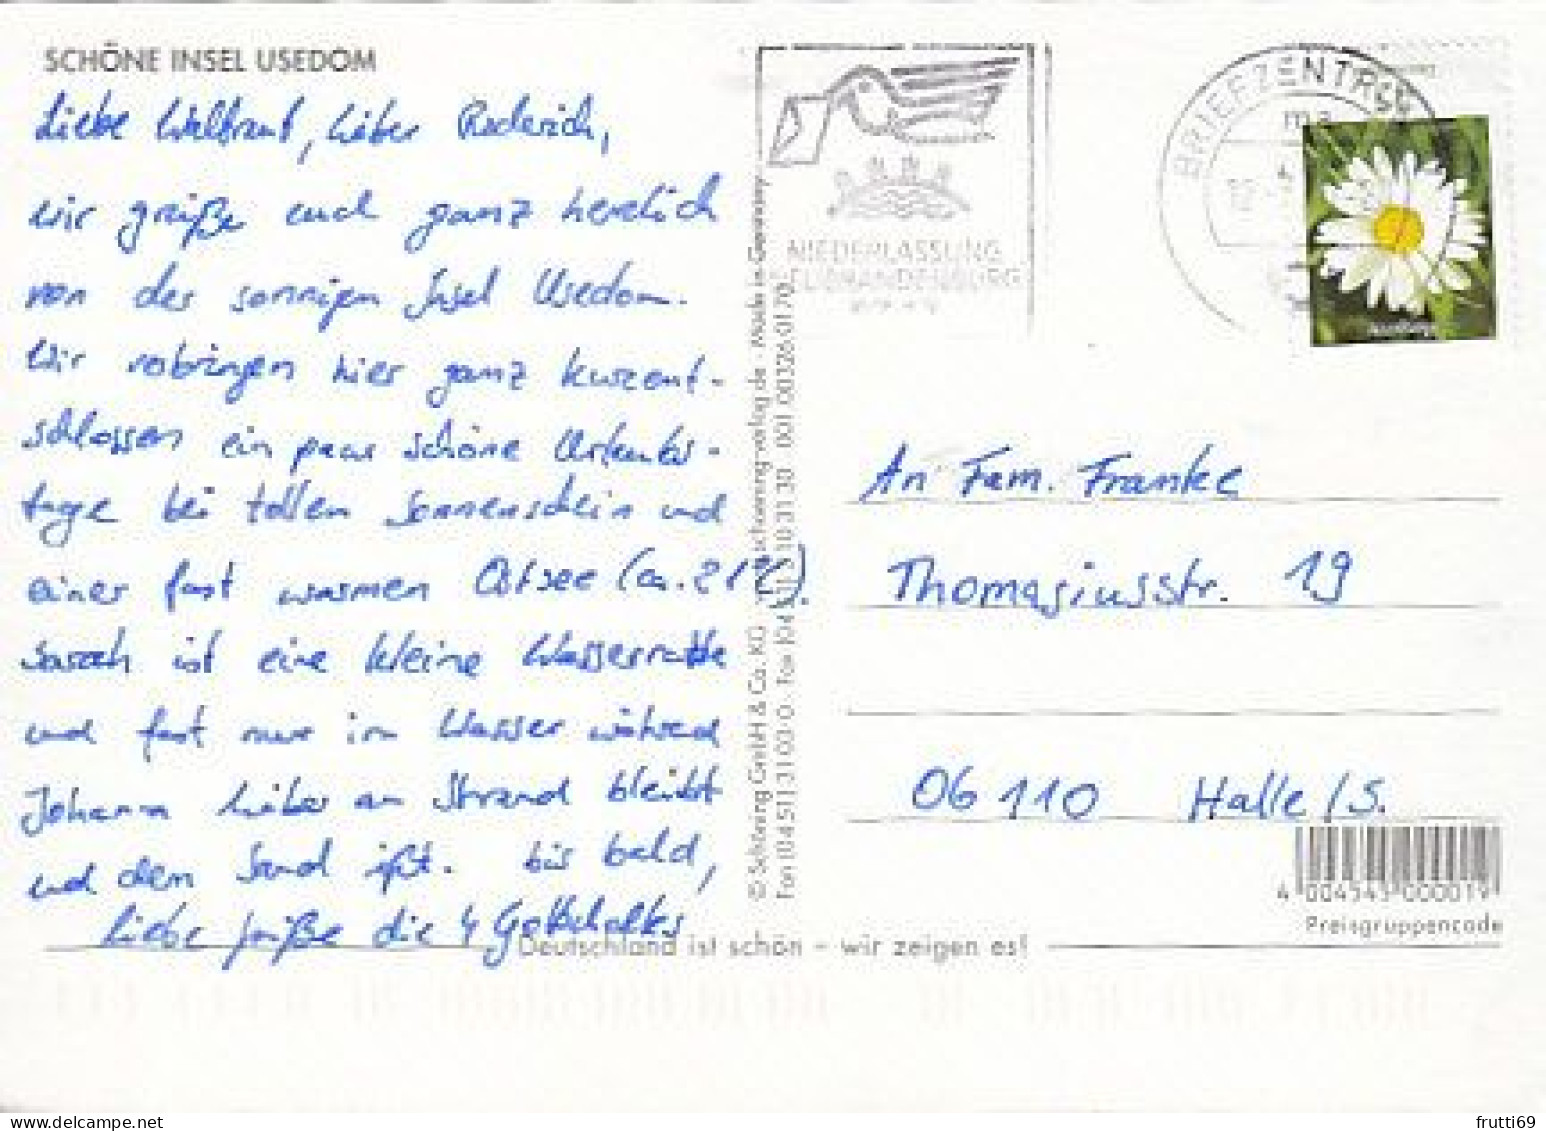 SCHÖNE INSEL USEDOM
Liebe Waltraut, lieber Roderich,
wir grüße euch ganz herzlich
von der sonnigen Insel Usedom.
Wir verbringen hier ganz kurzent-
schlossen ein paar schöne Urlaubs-
tage bei tollem Sonnenschein und
einer fast warmen Ostsee (ca. 21°).
Sarah ist eine kleine Wasserratte
und fast nur im Wasser während
Johanna lieber am Strand bleibt
und den Sand ißt. Bis bald,
Liebe Grüße die 4 Gottschalks
Deutschland ist schön – wir zeigen es!
© Schöning GmbH & Co. KG schoening-verlag.de · Made in Germany
Fon (04 51) 3 10 3-0 · Fax (04 51) 3 10 31 30 001 00326 01 70
NIEDERLASSUNG
NEUBRANDENBURG
BRIEFZENTRUM
ma
An Fam. Franke
Thomasiusstr. 19
06110 Halle/S.
4 004545 000019
Preisgruppencode
frutti69